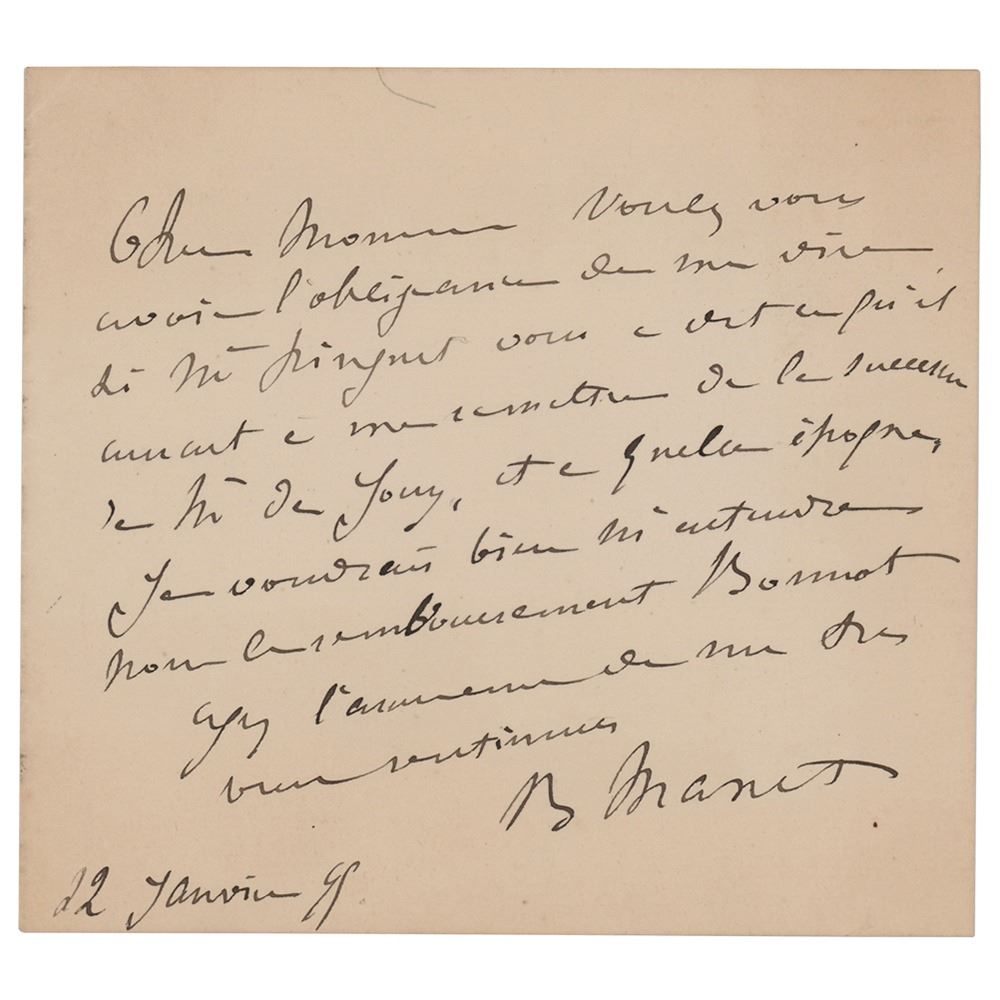 Cher Monsieur Voulez vous
avoir l'obligeance de me dire
si Mr Pinguet vous a dit ce qu'il
aurait à me remettre de la succession
de Mr de Jouy, et a quelle époque,
Je voudrais bien m'entendre
pour le remboursement Bonnot
agréez l'assurance de mes
bien sentiments
B Manet
22 Janvier 95